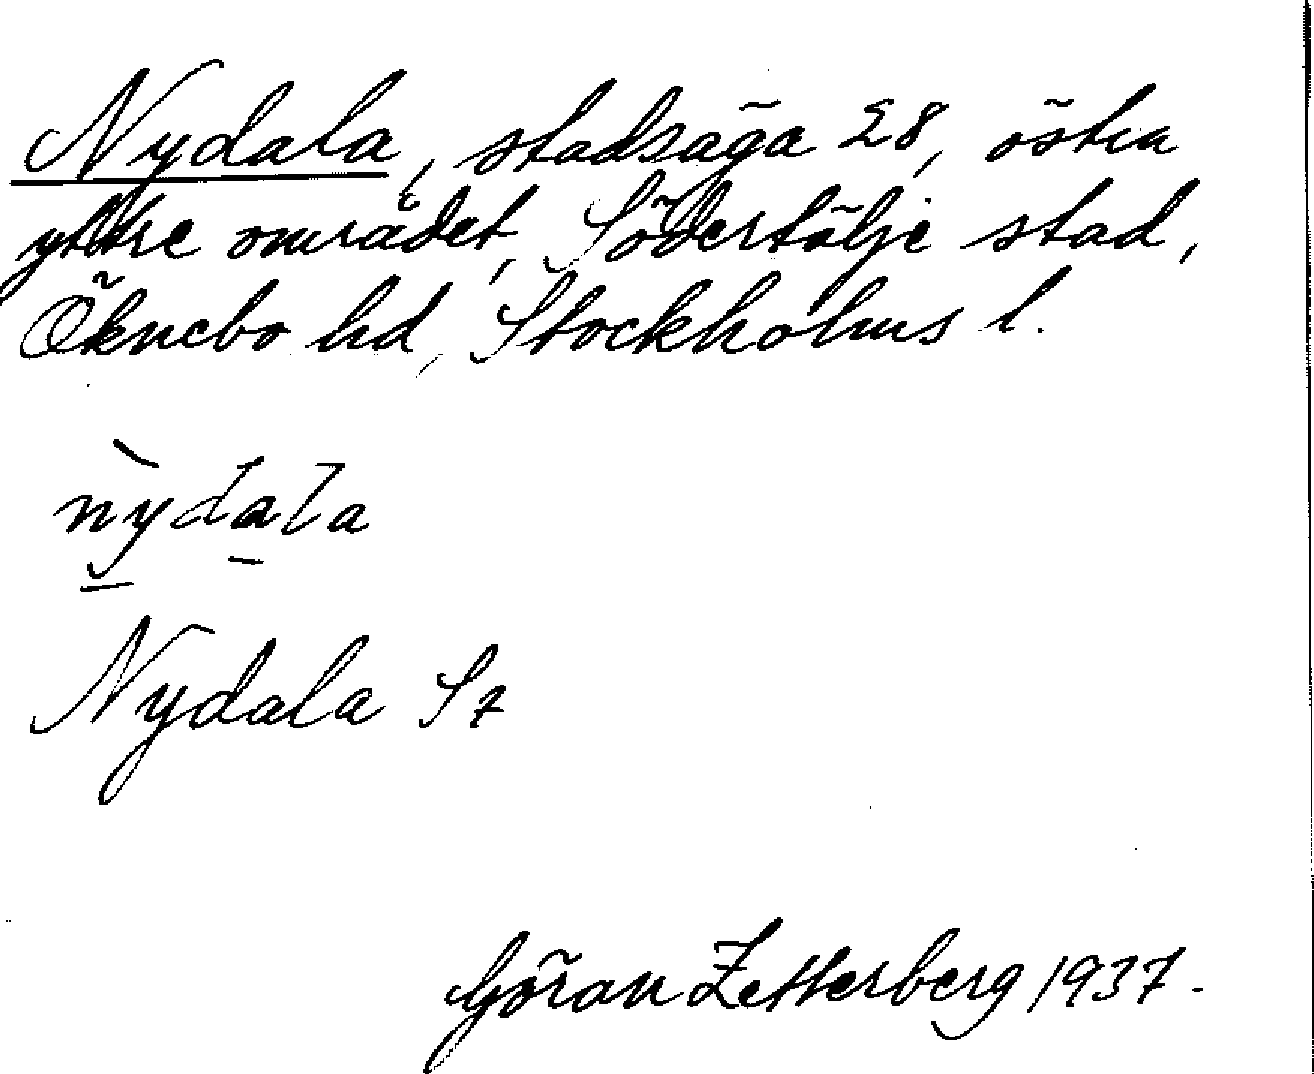 Nydala, stadsäga 28, östra
yttre området, Södertälje stad,
Öknebo hd, Stockholms l.
nỳdala
Nydala Sz
Göran Zetterberg 1937.